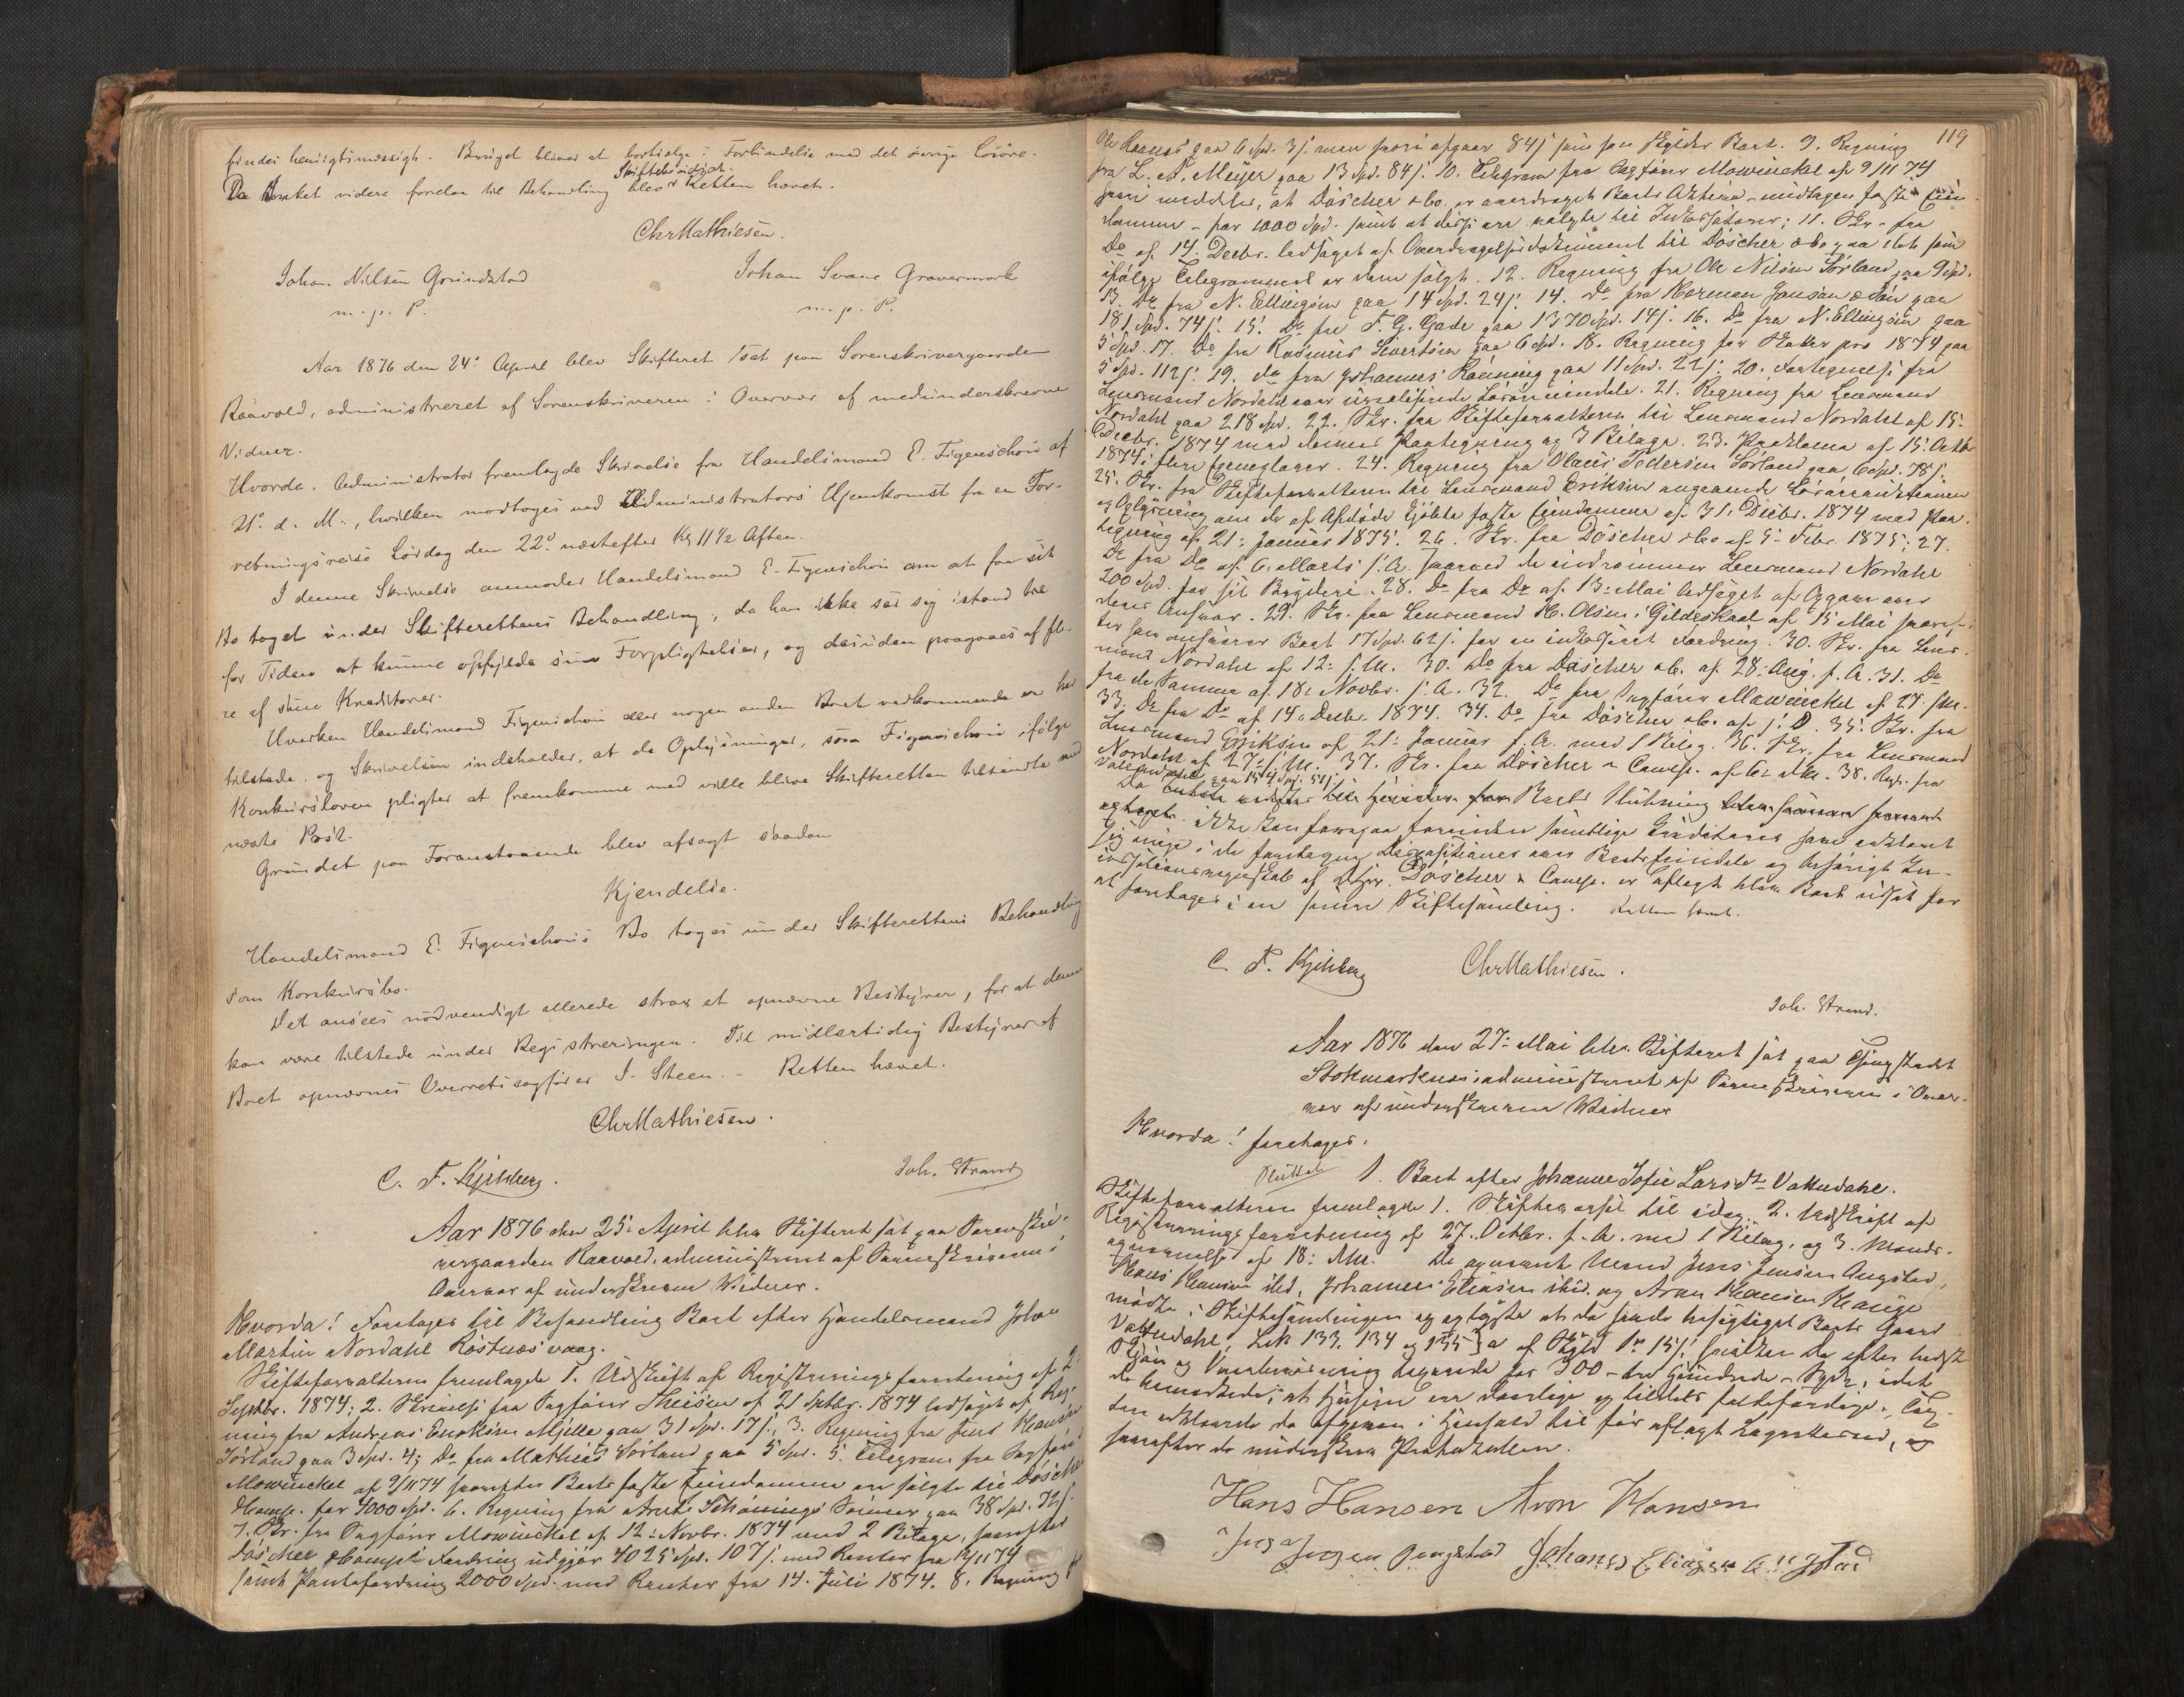 findes hensigtsmæssigt. Bruget bliver at bortsælge i Forbindelse med det øvrige Løsøre.
Da Intet videre forelaa til Behandling blev Skiftehandl. Retten hævet.
Chr Mathiesen.
Johan Nilsen Grundstad
m. p. P.
Johan Svane Gravermark
m. p. P.
Aar 1876 den 24de April blev Skifteret sat paa Sorenskrivergaarden
Raavold, administreret af Sorenskriveren i Overvær af medunderskrevne
Vidner.
Hvorda. Administrator fremlagde Skrivelse fra Handelsmand E. Figenschou af
21de d. M., hvilken modtoges ved Administrators Hjemkomst fra en For-
retningsreise Lørdag den 22de næstefter Kl 11 1/2 Aften.
I denne Skrivelse anmoder Handelsmand E. Figenschou om at faa sit
Bo taget under Skifterettens Behandling, da han ikke ser sig istand til
for Tiden at kunne opfylde sine Forpligtelser, og desuden paagaaes af fle-
re af sine Kreditorer.
Hverken Handelsmand Figenschou eller nogen anden Boet vedkommende er her
tilstede og Skrivelsen indeholder, at de Oplysninger, som Figenschou ifølge
Konkursloven pligter at fremkomme med ville blive Skifteretten tilsendte med
næste Post.
Grundet paa Foranstaaende blev afsagt saadan
Kjendelse.
Handelsmand E. Figenschous Bo tages under Skifterettens Behandling
som Konkursbo.
Det ansees nødvendigt allerede strax at opnævne Bestyrer, for at denne
kan være tilstede under Registreringen. Til midlertidig Bestyrer af
Boet opnævnes Overretssagfører J. Steen. – Retten hævet.
Chr Mathiesen.
C. F. Kjelberg.
Joh. Strand
Aar 1876 den 25de April blev Skifteret sat paa Sorenskri-
vergaarden Raavold, administreret af Sorenskriveren i
Overvær af underskrevne Vidner.
Hvorda! Foretages til Behandling Boet efter Handelsmand Johan
Martin Nordahl Røstnesvaag.
Skifteforvalteren fremlagde 1. Udskrift af Registreringsforretning af 2
Septbr. 1874; 2. Skrivelse fra Sagfører Theisen af 21 Septbr. 1874 ledsaget af Reg-
ning fra Andreas Enoksen Mjelle paa 31 Spd. 17 s; 3. Regning fra Jens Hansen
Sørland paa 3 Spd. 4; Do fra Mathias Sørland paa 5 Spd. 5. Telegram fra Sagfører
Mowinckel af 9/11 74 hvorefter Boets faste Eiendomme er solgte til Döscher
& Comp. for 4000 Spd. 6. Regning fra Arnt Schønings Sønner paa 38 Spd. 72 s.
7. Skr. fra Sagfører Mowinckel af 12te Novbr. 1874 med 2 Bilage, hvorefter
Döscher & Comp's Fordring udgjør 4025 Spd. 107 s. med Renter fra 12/11 74
samt Pantefordring 2000 Spd. med Renter fra 14. Juli 1874. 8. Regning
119
Ole Raanes paa 6 Spd. 3 s. men hvori afgaar 84 s som han skylder Boet. 9. Regning
fra L. A. Meijer paa 13 Spd. 84 s. 10. Telegram fra Sagfører Mowinckel af 9/11 74
hvori meddeles, at Döscher & Co. er overdraget Boets Aktiva – undtagen faste Eien-
domme – for 1000 Spd. samt at disse ere valgte til Inkassatorer; 11. Skr. fra
Do af 14 Decbr. ledsaget af Overdragelsesdokument til Döscher & Co paa det som
ifølge Telegrammet er dem solgt. 12. Regning fra Ole Nilsen Sørland paa 9 Spd.
13. Do fra N. Ellingsen paa 14 Spd. 24 s. 14. Do fra Herman Jansen & Søn paa
181 Spd. 74 s. 15. Do fra F. G. Gade paa 1370 Spd. 14 s. 16. Do fra N. Ellingsen paa
5 Spd. 17. Do fra Rasmus Sivertsen paa 6 Spd. 18. Regning for Skatter pro 1874 paa
5 Spd. 112 s. 19. Do fra Johannes Rønning paa 11 Spd. 22 s. 20. Fortegnelse fra
Lensmand Nordahl over Løsøreeiendele. 21. Regning fra Lensmand
Nordahl paa 218 Spd. 22. Skr. fra Skifteforvalteren til Lensmand Nordahl af 15.
Decbr. 1874 med dennes Paategning og 3 Bilage. 23. Proklama af 15. Octbr
1874 i flere Exemplarer. 24. Regning fra Olaus Pedersen Sørland paa 6 Spd. 78 s.
25. Skr. fra Skifteforvalteren til Lensmand Eriksen angaaende Løsøreauktionen
og Oplysning om de af Afdøde kjøbte faste Eiendomme af 31. Decbr. 1874 med Paa-
tegning af 21. Januar 1875. 26. Skr. fra Döscher & Co af 5. Febr. 1875; 27.
Do fra Do af 6. Marts s. A. hvorved de indrømmer Lensmand Nordahl
200 Spd. for sit Bryderi. 28. Do fra Do af 13. Mai ledsaget af Opgave over
deres Ansvar. 29. Skr. fra Lensmand H. Olsen i Gildeskaal af 15 Mai hvoref-
ter han ansvarer Boet 17 Spd. 62 s. for en inkasseret Fordring. 30. Skr. fra Lens-
mand Nordahl af 12. s. M. 30. Do fra Döscher & Co. af 28. Aug. s. A. 31. Do
fra de Samme af 18. Novbr. s. A. 32. Do fra Sagfører Mowinckel af 27. s. M.
33. Do fra Do af 14. Decbr. 1874. 34. Do fra Döscher & Co. af s. D. 35. Skr. fra
Lensmand Eriksen af 21. Januar f. A. med 1 Bilag. 36. Skr. fra Lensmand
Nordahl af 27. s. M. 37. Skr. fra Döscher & Comp. af 6. d. M. 38. Regn. fra
paa 154 Spd. 51 s.
Da Boets Slutning
ikke kan foregaa forinden samtlige Kreditorer have erklæret
sig enige i de foretagne Dispositioner over Boets Eiendele og behørigt In-
cassationsregnskab af Hrr. Döscher & Comp. er aflagt blev Boet udsat for
at foretages i en senere Skiftesamling. Retten hævet.
C. F. Kjelberg
Chr Mathiesen.
Joh. Strand.
Aar 1876 den 27de Mai blev Skifteret sat paa Thingstedet
Stokmarknes administreret af Sorenskriveren i Over-
vær af underskrevne Vidner
Hvorda! foretages.
Sluttet 1. Boet efter Johanne Sofie Larsdtr Vattendahl.
Skifteforvalteren fremlagde 1. Skiftevarsel til idag, 2. Udskrift af
Registreringsforretning af 27. Octbr. f. A. med 1 Bilag, og 3. Mands-
opnævnelse af 18. d. M. De opnævnte Mænd Jens Jensen Ongstad,
Hans Hansen ibid, Johannes Eliasen ibid. og Aron Hansen Hauge
mødte i Skiftesamlingen og oplyste at de havde besigtiget Boets Gaard
Vattendahl, Lnr. 133, 134 og 135 a af Skyld 1 15 s. hvilken de efter bedste
Skjøn og Overbevisning taxerede for 300 – tre Hundrede – Spdr., idet
de bemærkede, at Husene ere daarlige og tildels faldefærdige. Tax-
ten erklærede de afgiven i Henhold til før aflagt Lagretteed, og
hvorefter de underskrev Protokollen.
Hans Hansen Aron Hansen
Jens Jensen Ongstad Johanes Eliasen Ongstad